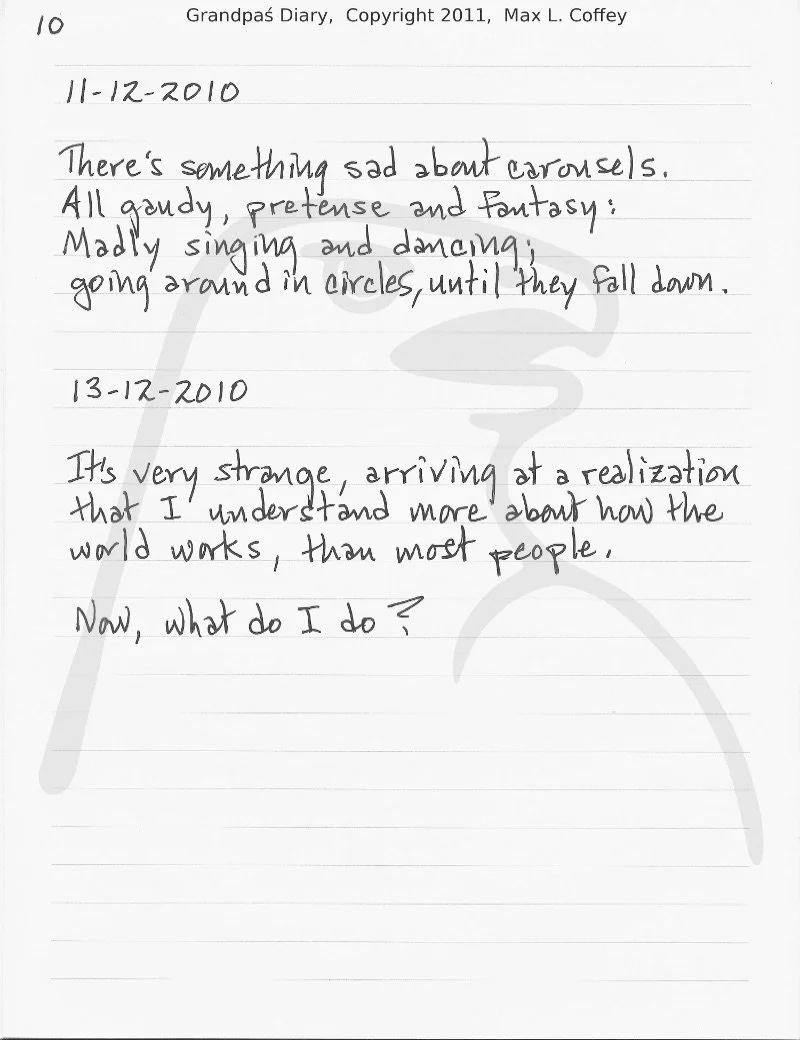 10
Grandpaś Diary, Copyright 2011, Max L. Coffey
11-12-2010
There's something sad about carousels.
All gaudy, pretense and fantasy:
Madly singing and dancing;
going around in circles, until they fall down.
13-12-2010
It's very strange, arriving at a realization
that I understand more about how the
world works, than most people.
Now, what do I do?